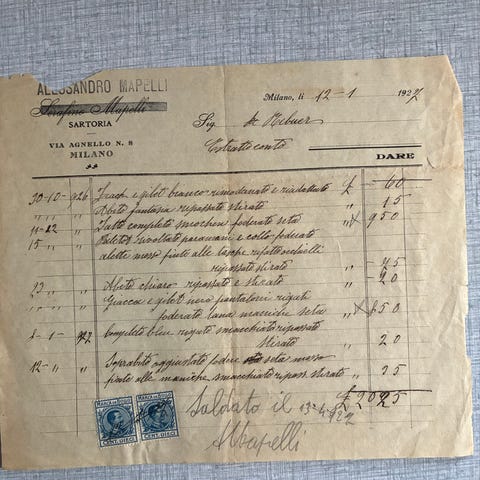 ALESSANDRO MAPELLI
Serafino Mapelli
SARTORIA
VIA AGNELLO N. 8
MILANO
Milano, li 12-1 1927
Sig. de Rebuer
Estratto conto
DARE
30-10-926 Frach e gilet bianco rimodanato e riadattato £ 60
" " " Abito fantasia ripassato stirato " 15
11-12 " Fatto completo smochen foderato seta " x 950
15 " " Paletot rivoltato paramani e collo foderato
alette messo finte alle tasche rifatto occhielli
ripassato stirato " 45
23 " " Abito chiaro ripassato e stirato " 20
" " " Giacca e gilet nero pantaloni rigati
foderato lana maniche seta " x 850
8-1-927 Completo bleu rigato smacchiato ripassato
stirato " 20
12- " " Soprabito aggiustato fodere seta messo
finte alle maniche smacchiato ripass. stirato " 25
£ 2025
MARCA DA BOLLO
CENT. DIECI
MARCA DA BOLLO
CENT. DIECI
Saldato il 13-4-927
AMapelli